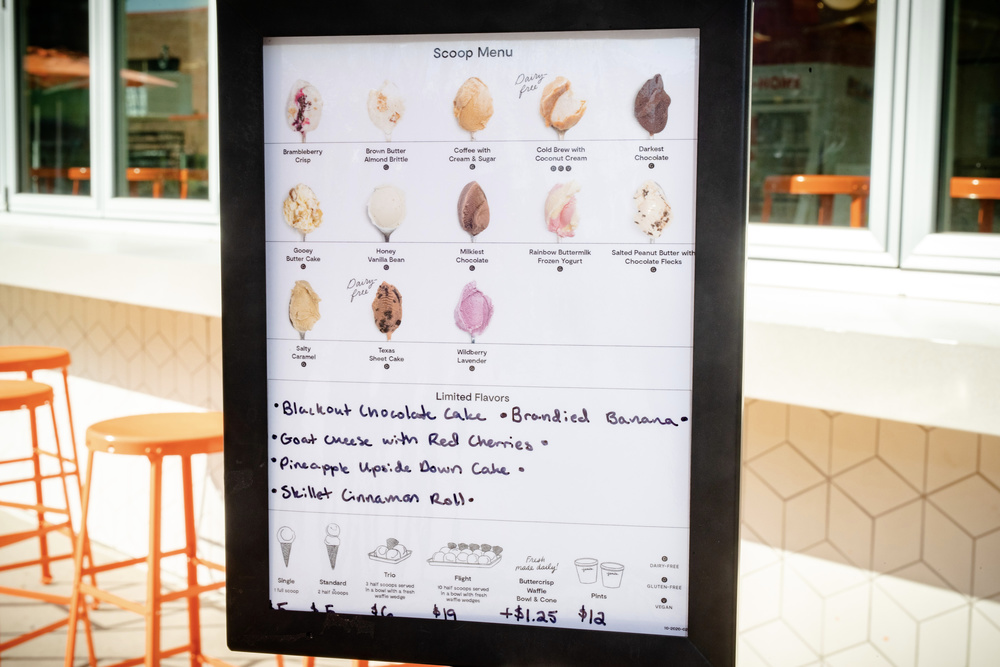 Scoop Menu
Dairy-free
Brambleberry Crisp
Brown Butter Almond Brittle
G
Coffee with Cream & Sugar
G
Cold Brew with Coconut Cream
D G V
Darkest Chocolate
G
Gooey Butter Cake
Honey Vanilla Bean
G
Milkiest Chocolate
G
Rainbow Buttermilk Frozen Yogurt
G
Salted Peanut Butter with Chocolate Flecks
G
Dairy-free
Salty Caramel
G
Texas Sheet Cake
D
Wildberry Lavender
G
Limited Flavors
•Blackout Chocolate Cake •Brandied Banana•
•Goat Cheese with Red Cherries •
•Pineapple Upside Down Cake •
•Skillet Cinnamon Roll•
Single
1 full scoop
Standard
2 half scoops
Trio
3 half scoops served in a bowl with fresh waffle wedge
Flight
10 half scoops served in a bowl with fresh waffle wedges
Fresh made daily!
Buttercrisp Waffle Bowl & Cone
Pints
D
DAIRY-FREE
G
GLUTEN-FREE
V
VEGAN
$5
$6
$19
+$1.25
$12